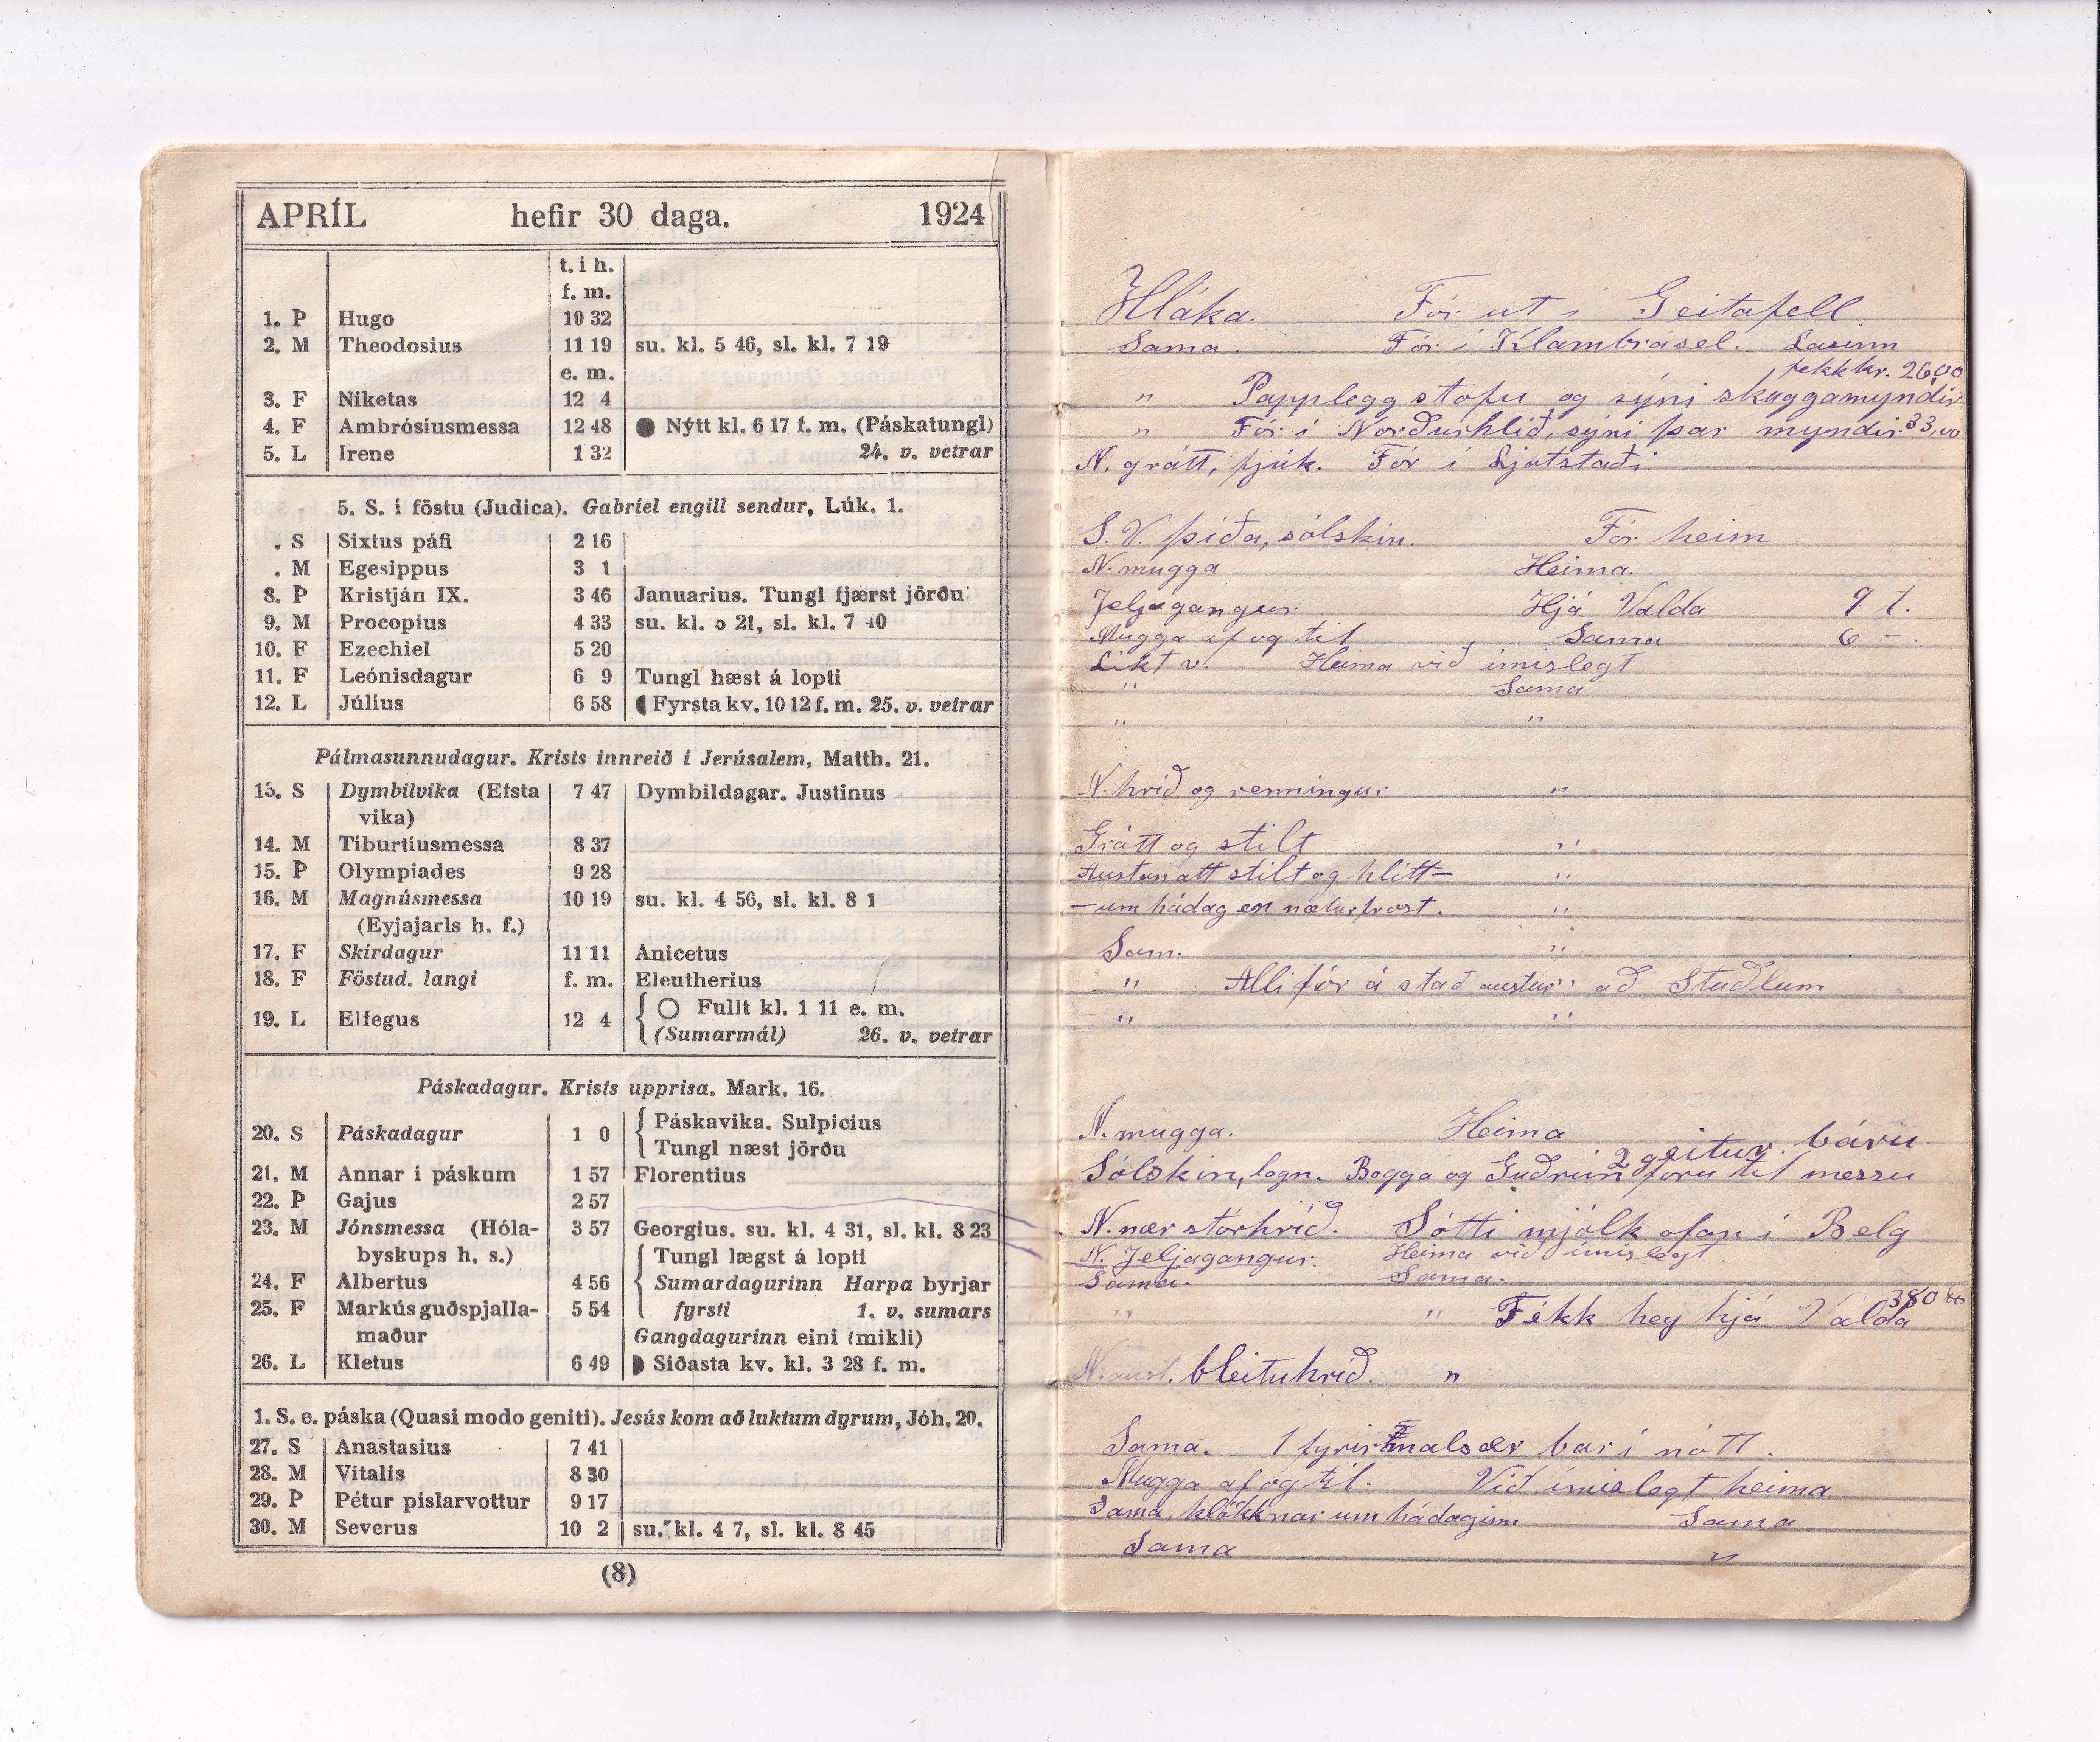 APRÍL hefir 30 daga. 1924
t. í h.
f. m.
1. Þ Hugo 10 32
2. M Theodosius 11 19 su. kl. 5 46, sl. kl. 7 19
e. m.
3. F Niketas 12 4
4. F Ambrósíusmessa 12 48 ● Nýtt kl. 6 17 f. m. (Páskatungl)
5. L Irene 1 32 24. v. vetrar
5. S. í föstu (Judica). Gabríel engill sendur, Lúk. 1.
. S Sixtus páfi 2 16
. M Egesippus 3 1
8. Þ Kristján IX. 3 46 Januarius. Tungl fjærst jörðu
9. M Procopius 4 33 su. kl. 5 21, sl. kl. 7 40
10. F Ezechiel 5 20
11. F Leónisdagur 6 9 Tungl hæst á lopti
12. L Júlíus 6 58 Fyrsta kv. 10 12 f. m. 25. v. vetrar
Pálmasunnudagur. Krists innreið í Jerúsalem, Matth. 21.
13. S Dymbilvika (Efsta 7 47 Dymbildagar. Justinus
vika)
14. M Tíburtíusmessa 8 37
15. Þ Olympiades 9 28
16. M Magnúsmessa 10 19 su. kl. 4 56, sl. kl. 8 1
(Eyjajarls h. f.)
17. F Skírdagur 11 11 Anicetus
18. F Föstud. langi f. m. Eleutherius
19. L Elfegus 12 4 ○ Fullt kl. 1 11 e. m.
(Sumarmál) 26. v. vetrar
Páskadagur. Krists upprisa. Mark. 16.
20. S Páskadagur 1 0 Páskavika. Sulpicius
Tungl næst jörðu
21. M Annar í páskum 1 57 Florentius
22. Þ Gajus 2 57
23. M Jónsmessa (Hóla- 3 57 Georgius. su. kl. 4 31, sl. kl. 8 23
byskups h. s.) Tungl lægst á lopti
24. F Albertus 4 56 Sumardagurinn Harpa byrjar
25. F Markús guðspjalla- 5 54 fyrsti 1. v. sumars
maður Gangdagurinn eini (mikli)
26. L Kletus 6 49 Síðasta kv. kl. 3 28 f. m.
1. S. e. páska (Quasi modo geniti). Jesús kom að luktum dyrum, Jóh. 20.
27. S Anastasius 7 41
28. M Vitalis 8 30
29. Þ Pétur píslarvottur 9 17
30. M Severus 10 2 su. kl. 4 7, sl. kl. 8 45
(8)
Hláka. Fór út í Geitafell
Sama. Fór í Klambrasel.
fekk kr. 26,00
" Papplegg stofu og sýni skuggamyndir
" Fór í Norðurhlíð, sýni þar myndir. 33,00
N. grátt, fjúk. Fór í Ljótstaði
S.V. þíða, sólskin. Fór heim
N. mugga Heima.
Jeljagangur. Hjá Valda 9 t.
Mugga af og til Sama 6 -
Líkt v. Heima við ímislegt
" Sama
" "
N. hríð og renningur "
Grátt og stilt "
Austanátt stilt og hlítt– "
– um hádag en næturfrost. "
Sam. "
" Alli fór á stað austur að Stuðlum
" "
N. mugga. Heima
2 geitur báru
Sólskin, logn. Bogga og Guðrún fóru til messu
N. nær stórhríð. Sótti mjólk ofan í Belg
N. Jeljagangur. Heima við ímislegt
Sama. Sama.
380 00
" " Fékk hey hjá Valda
N. aust. bleituhríð. "
Sama. 1 fyrirmálsær bar í nótt.
Mugga af og til. Við ímislegt heima
Sama, klökknar um hádaginn Sama
Sama "